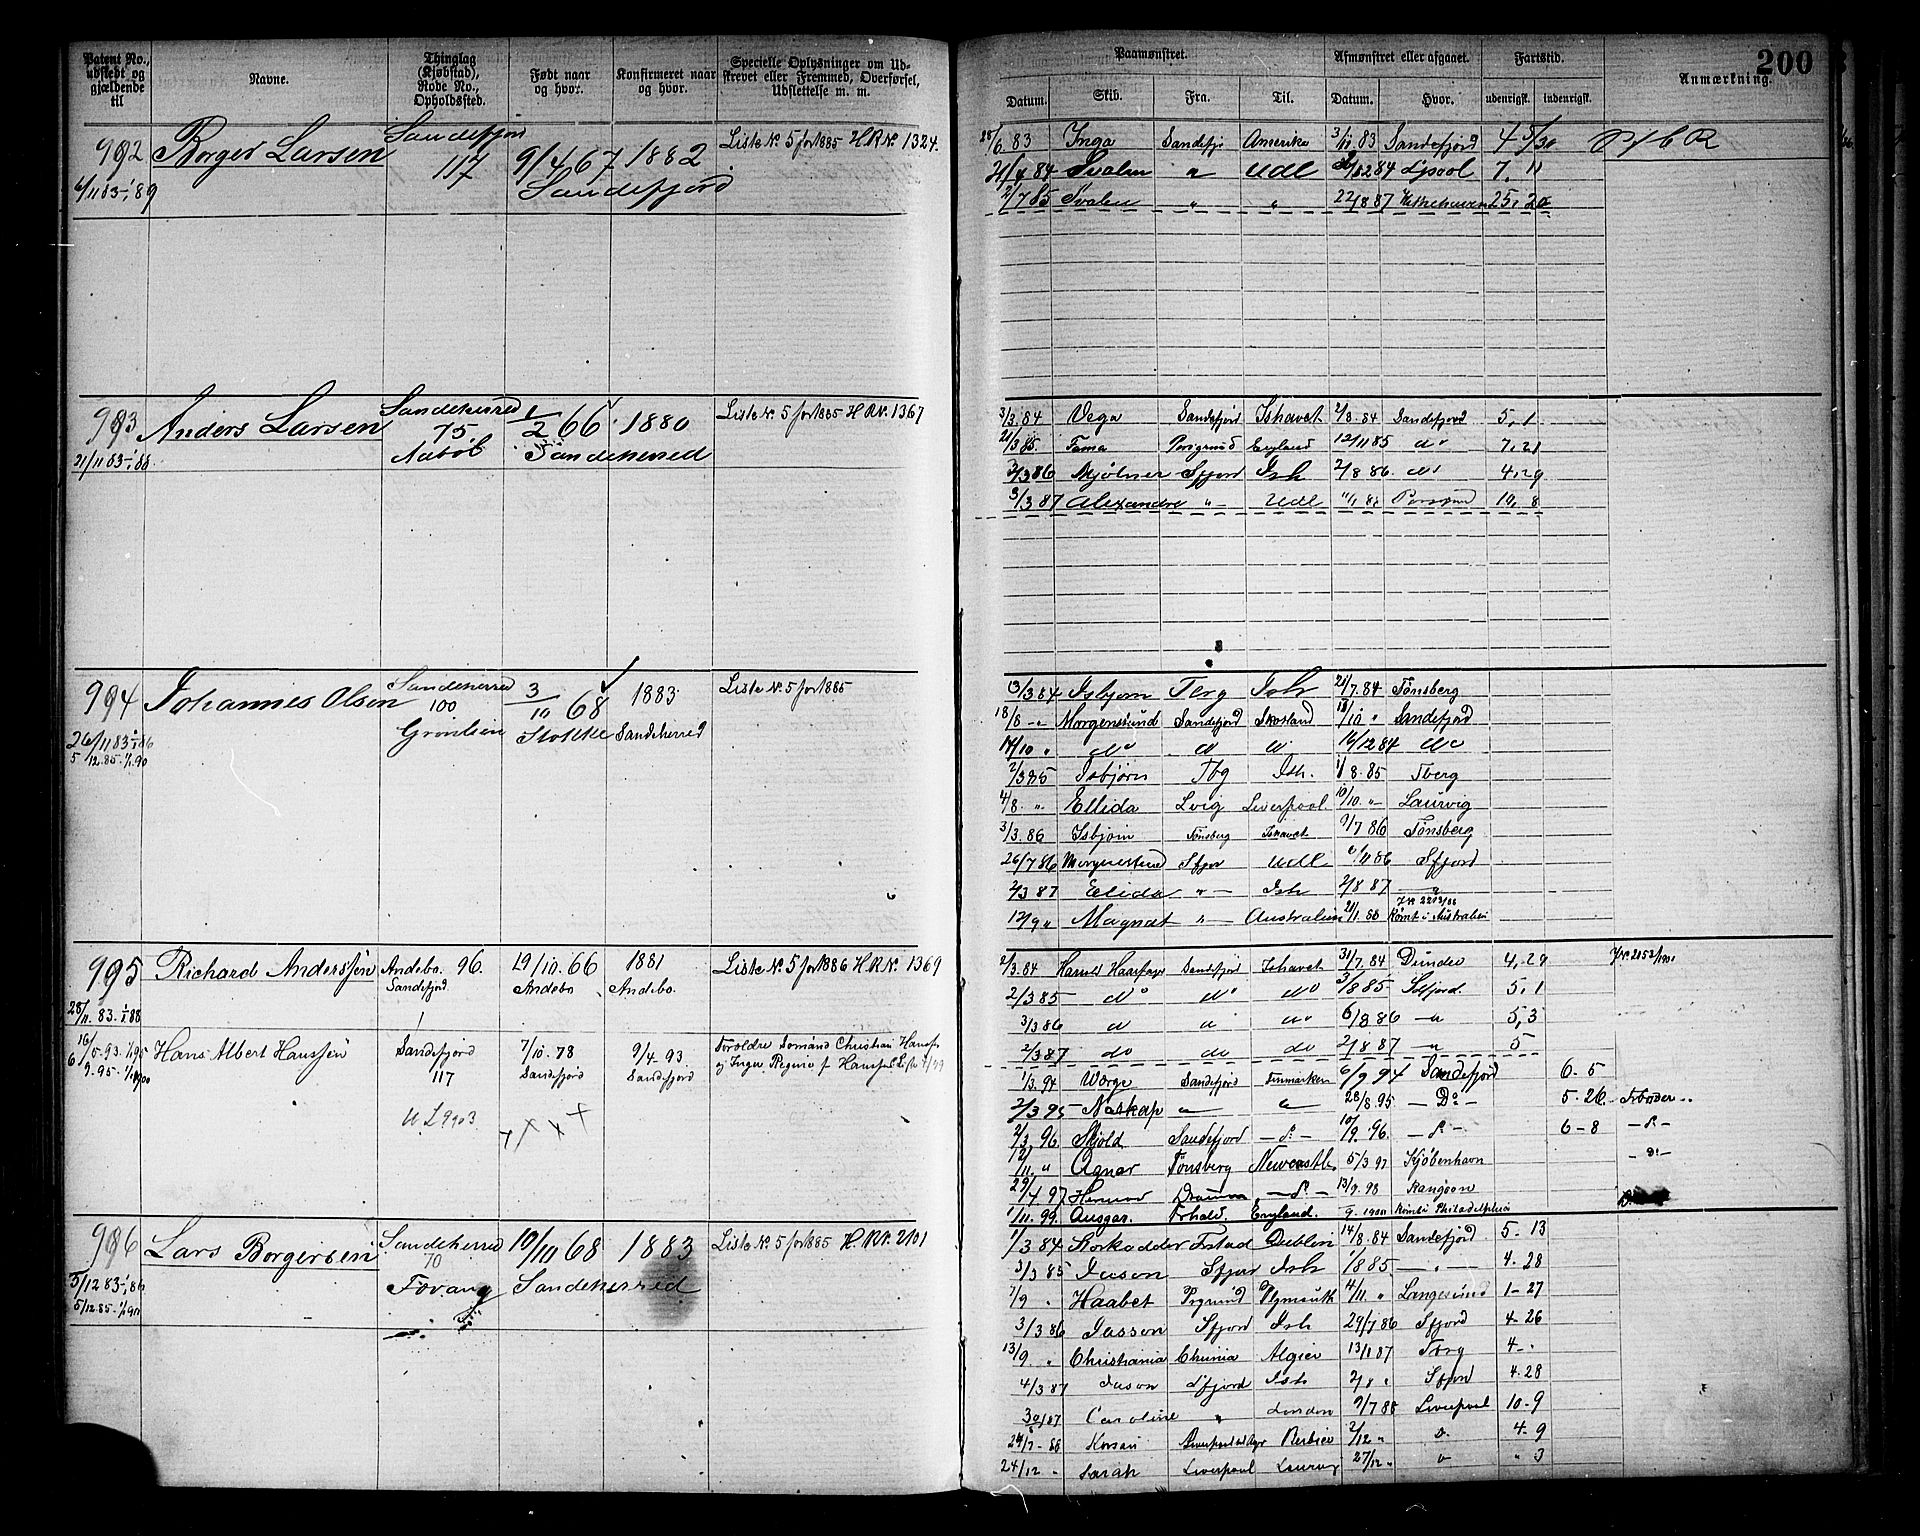 Patent No., udstedt og gjældende til
Navne.
Thinglag (Kjøbstad), Rode No., Opholdssted.
Født naar og hvor.
Konfirmeret naar og hvor.
Specielle Oplysninger om Udskrevet eller Fremmed, Overførsel, Udslettelse m. m.
992 Borger Larsen Sandefjord 117 9/4 67 Sandefjord 1882 Liste No. 5 for 1885 H.R.No. 1324.
6/11 83-1/1 89
993 Anders Larsen Sandeherred 75 1/2 66 Sandeherred 1880 Liste No. 5 for 1885 H.R.No. 1367
21/11 83-1/1 88
994 Johannes Olsen Sandeherred 100 3/10 68 Stokke 1883 Sandeherred Liste No. 5 for 1885
26/11 83 1/1 86
5/12.85.-1/1.90
995 Richard Anderssen Andebo. 96. Sandefjord 19/10. 66 Andebo 1881 Andebo. Liste No. 5 for 1886 H.R.No. 1369
28/11. 83. 1/1 88
Hans Albert Hanssen Sandefjord 117 7/10. 78 Sandefjord 9/4. 93. Sandefjord Forældre Sømand Christian
996 Lars Borgersen Sandeherred 70 10/10 68 Sandeherred 1883 Liste No. 5 for 1885 H.R.No. 2101
5/12 83-1/1 86
5/12.85.-1/1 90
200
Paamønstret.
Afmønstret eller afgaaet.
Fartstid.
Anmærkning.
Datum. Skib. Fra. Til. Datum. Hvor. udenrigsk. indenrigsk.
25/6 83 Inga Sandefj Amerika 3/11 83 Sandefjord
84 Svalen " Udl 84 L'pool 7, 11
2/7 85 Svalen " " 22/8 87 25, 20
3/3. 84 Vega Sandefjord Ishavet 2/8. 84 Sandefjord 5, 1
21/3 85. Fama Porsgrund England 12/11 85 do 7, 21
3/3 86 Mjølner Sfjord Ish 2/8 86. do 4, 29
3/3 87 Alexandre " Udl 10, 8
3/3. 84 Isbjørn Tbrg Ish 28/7. 84 Tønsberg
18/8 -"- Morgenstund Sandefjord Skotland 18/10 " Sandefjord
14/10 " do do do 16/12 84 do
2/3 85 Isbjørn Tbg Ish. 1/8. 85 Tberg
4/8. " Ellida Lvig Liverpool. 10/10 -"- Laurvig
3/3. 86 Isbjørn Tønsberg Ishavet 9/7 86 Tønsberg
26/7 86 Morgenstund Sfjor Udl 86 Sfjord
2/3 87 Elida " Ish 2/8 87 "
12/9 " Magnat " Australien 21/1. 88 Rømt i Australien
2/3. 84 Harald Haarfager Sandefjord Ishavet 31/7. 84 Dundee 4, 29
2/3 85 do do do 3/8 85 Sfjord. 5, 1
3/3 86 do do do 6/8 86 -"- 5, 3
2/3 87 do do do 2/8 87 -"- 5
1/3. 94 Værge Sandefjord Finmarken 6/9 94 Sandefjord 6-5
2/3 95 Naskap " " 28/8. 95 - Do - 5-26
2/3 96 Skjold Sandefjord - do - 10/9. 96. - do - 6-8 - do -
" Agnar Tønsberg Newcastle 5/3. 97 Kjøbenhavn
97 Hermod Drammen - do - 13/9. 98 Rangoon
1/11. 99. Ansgar. Frhald. England. 9. 1900 Rømt i Philadelphia
1/3 84 Storkodder Fstad Dublin 14/8. 84 Sandefjord 5. 13
3/3 85 Jason Sfjor Ish 1/8 85. " 4. 28
7/9 " Haabet Prgrund Plymouth 14/11. " Langesund 1-27
3/3 86 Jasson Sfjord Ish 29/7 86 Sfjord 4-26
13/9. " Christiania Chrania Algier 13/1 87 Tbrg 4-
4/3 87 Jason Sfjord Ish 2/8 " Sfjord 4. 28
87 Caroline " London 9/7 88 Liverpool 10-9
88 Korsar 2/12 " " 4-9
24/12 " Sarah Liverpool Laurvig 27/12 " " 3